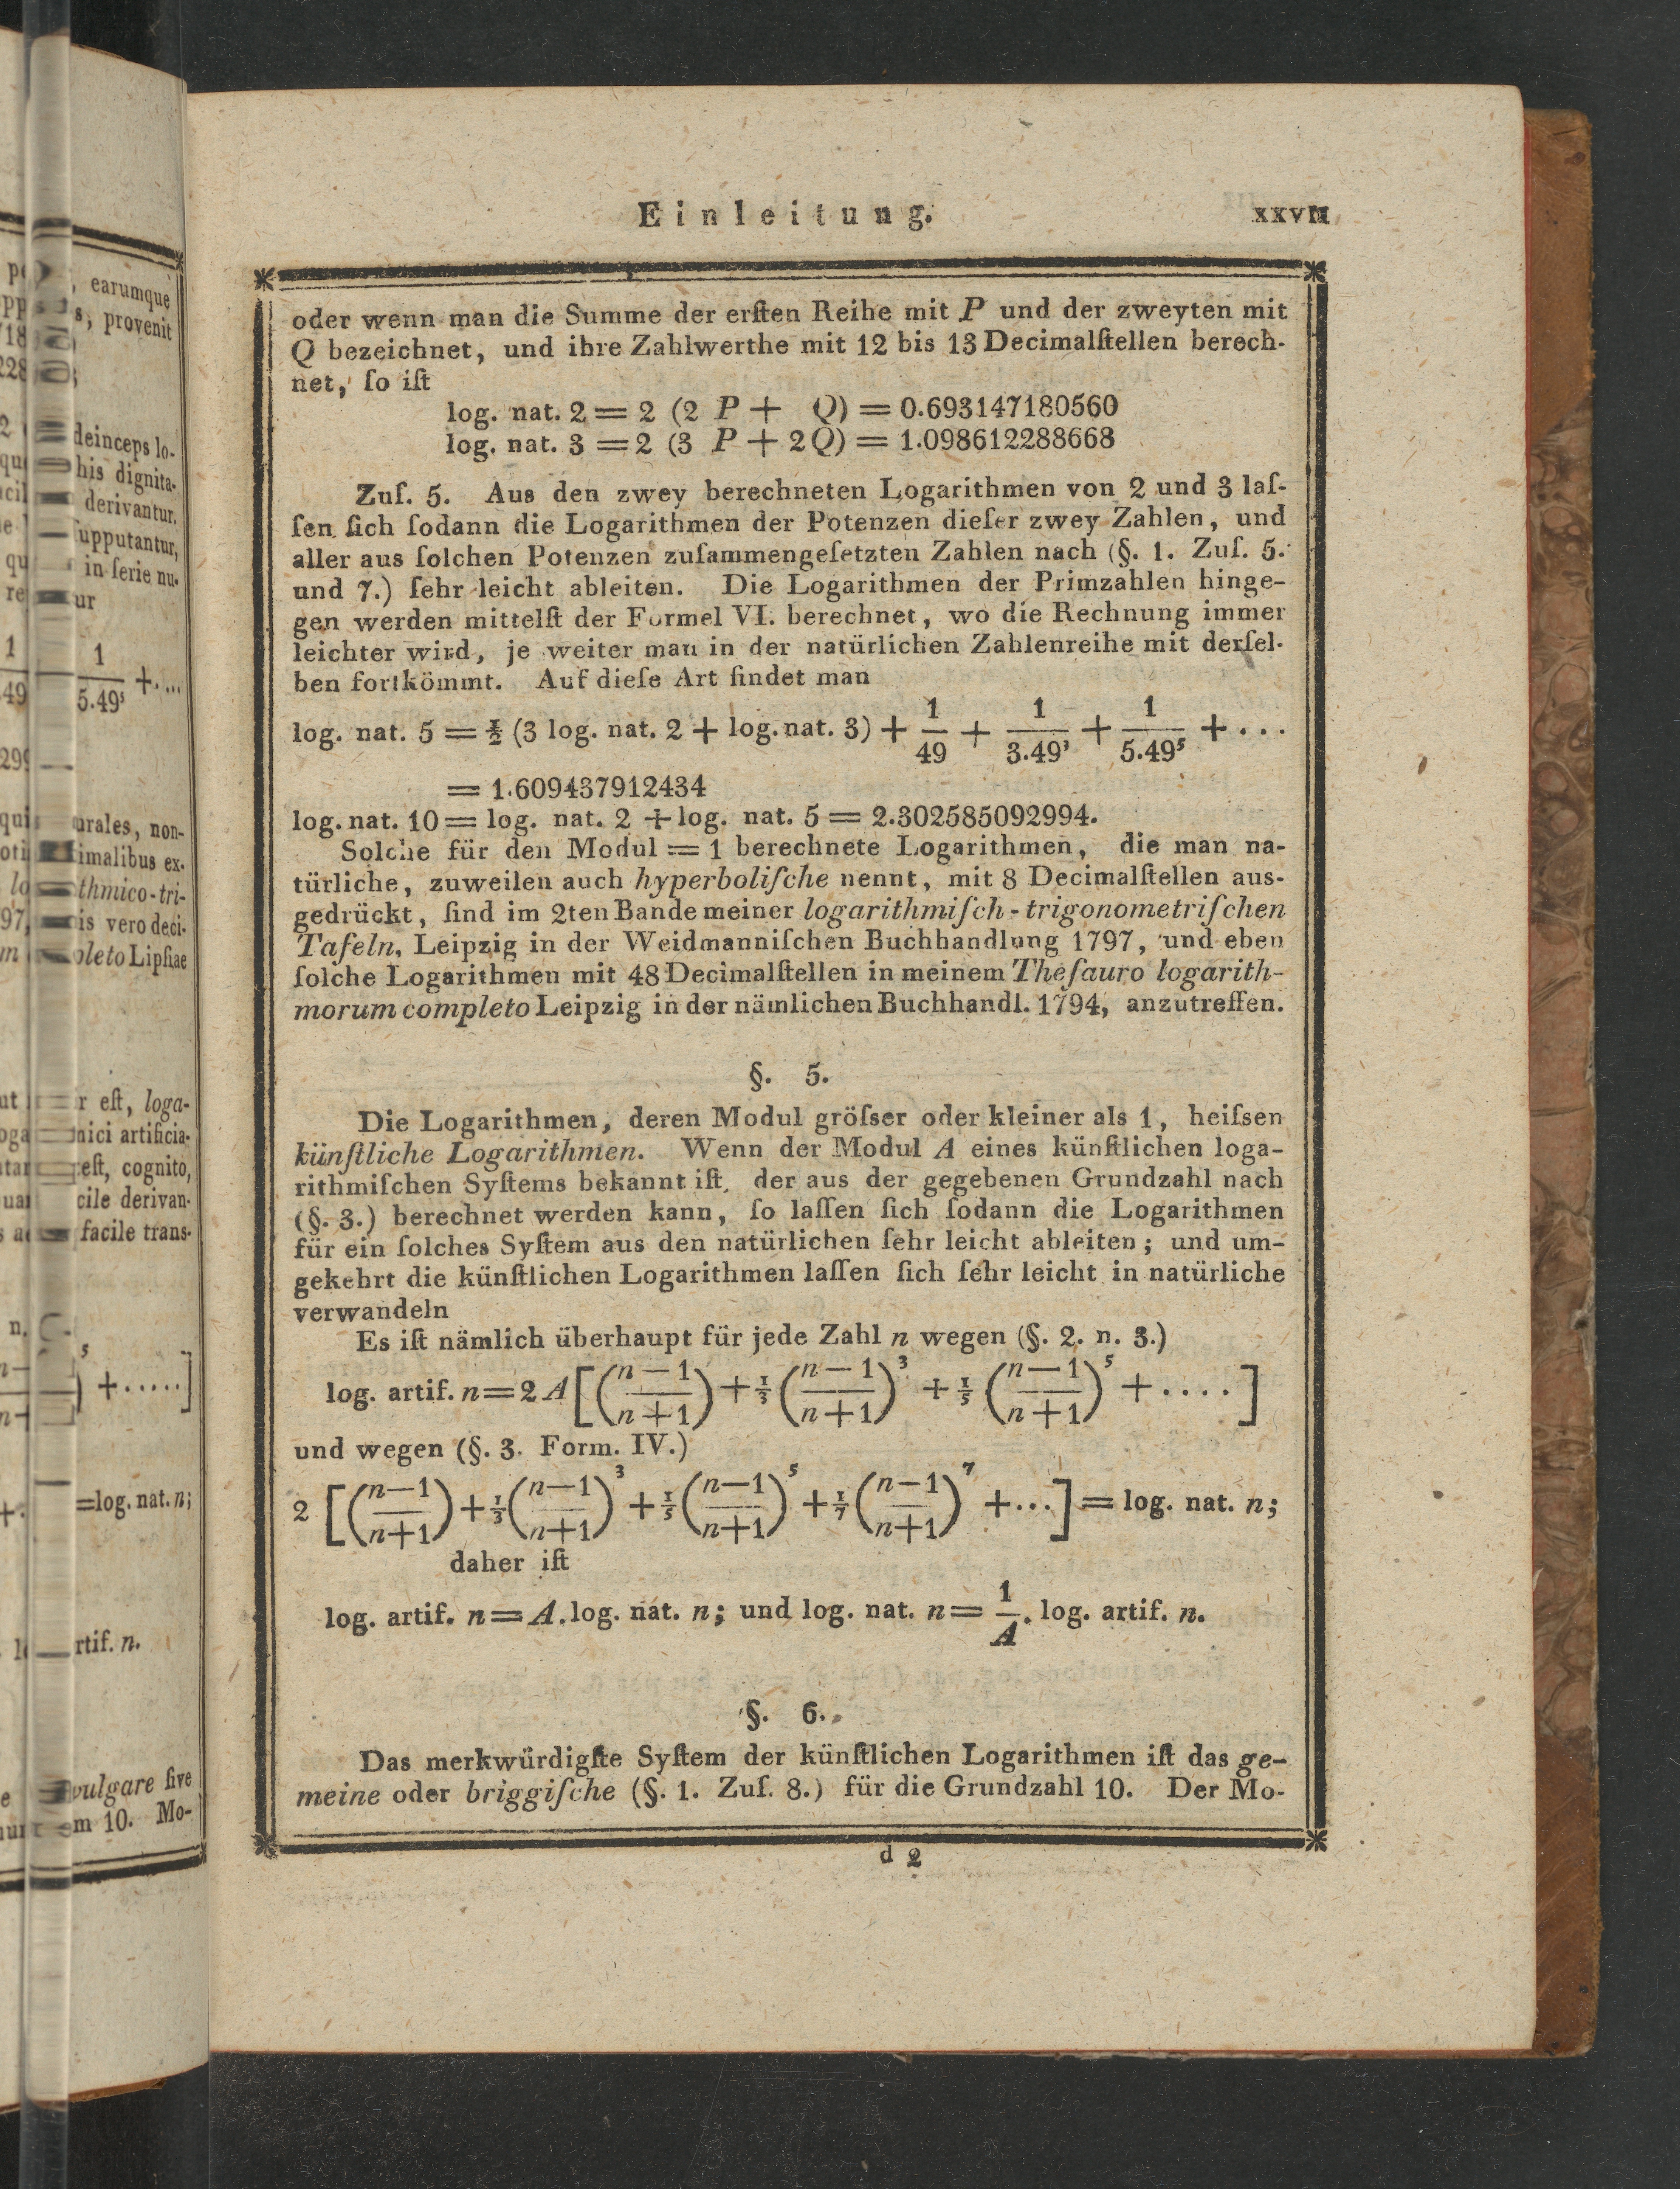 Einleitung. XXVII
oder wenn man die Summe der erſten Reihe mit P und der zweyten mit
Q bezeichnet, und ihre Zahlwerthe mit 12 bis 13 Decimalſtellen berech-
net, ſo iſt
log. nat. 2 = 2 (2 P + Q) = 0.693147180560
log. nat. 3 = 2 (3 P + 2Q) = 1.098612288668
Zuſ. 5. Aus den zwey berechneten Logarithmen von 2 und 3 laſ-
ſen ſich ſodann die Logarithmen der Potenzen dieſer zwey Zahlen, und
aller aus ſolchen Potenzen zuſammengeſetzten Zahlen nach (§. 1. Zuſ. 5.
und 7.) ſehr leicht ableiten. Die Logarithmen der Primzahlen hinge-
gen werden mittelſt der Formel VI. berechnet, wo die Rechnung immer
leichter wird, je weiter man in der natürlichen Zahlenreihe mit derſel-
ben fortkömmt. Auf dieſe Art findet man
log. nat. 5 = ½ (3 log. nat. 2 + log. nat. 3) + 1/49 + 1/3.49³ + 1/5.49⁵ + ...
= 1.609437912434
log. nat. 10 = log. nat. 2 + log. nat. 5 = 2.302585092994.
Solche für den Modul = 1 berechnete Logarithmen, die man na-
türliche, zuweilen auch hyperboliſche nennt, mit 8 Decimalſtellen aus-
gedrückt, ſind im 2ten Bande meiner logarithmiſch-trigonometriſchen
Tafeln, Leipzig in der Weidmanniſchen Buchhandlung 1797, und eben
ſolche Logarithmen mit 48 Decimalſtellen in meinem Theſauro logarith-
morum completo Leipzig in der nämlichen Buchhandl. 1794, anzutreffen.
§. 5.
Die Logarithmen, deren Modul gröſser oder kleiner als 1, heiſsen
künſtliche Logarithmen. Wenn der Modul A eines künſtlichen loga-
rithmiſchen Syſtems bekannt iſt, der aus der gegebenen Grundzahl nach
(§. 3.) berechnet werden kann, ſo laſſen ſich ſodann die Logarithmen
für ein ſolches Syſtem aus den natürlichen ſehr leicht ableiten; und um-
gekehrt die künſtlichen Logarithmen laſſen ſich ſehr leicht in natürliche
verwandeln
Es iſt nämlich überhaupt für jede Zahl n wegen (§. 2. n. 3.)
log. artif. n = 2 A [((n−1)/(n+1)) + ⅓ ((n−1)/(n+1))³ + ⅕ ((n−1)/(n+1))⁵ + ....]
und wegen (§. 3. Form. IV.)
2 [((n−1)/(n+1)) + ⅓ ((n−1)/(n+1))³ + ⅕ ((n−1)/(n+1))⁵ + ⅐ ((n−1)/(n+1))⁷ + ...] = log. nat. n;
daher iſt
log. artif. n = A. log. nat. n; und log. nat. n = 1/A . log. artif. n.
§. 6.
Das merkwürdigſte Syſtem der künſtlichen Logarithmen iſt das ge-
meine oder briggiſche (§. 1. Zuſ. 8.) für die Grundzahl 10. Der Mo-
d 2
earumque
s, provenit
deinceps lo-
his dignita-
derivantur,
ſupputantur,
in ſerie nu-
ur
1/5.49⁵ + ...
imalibus ex-
is vero deci-
Lipſiae
r eſt, loga-
eſt, cognito,
cile derivan-
facile trans-
⁵ + .....]
=log. nat. n;
rtif. n.
vulgare ſive
m 10. Mo-